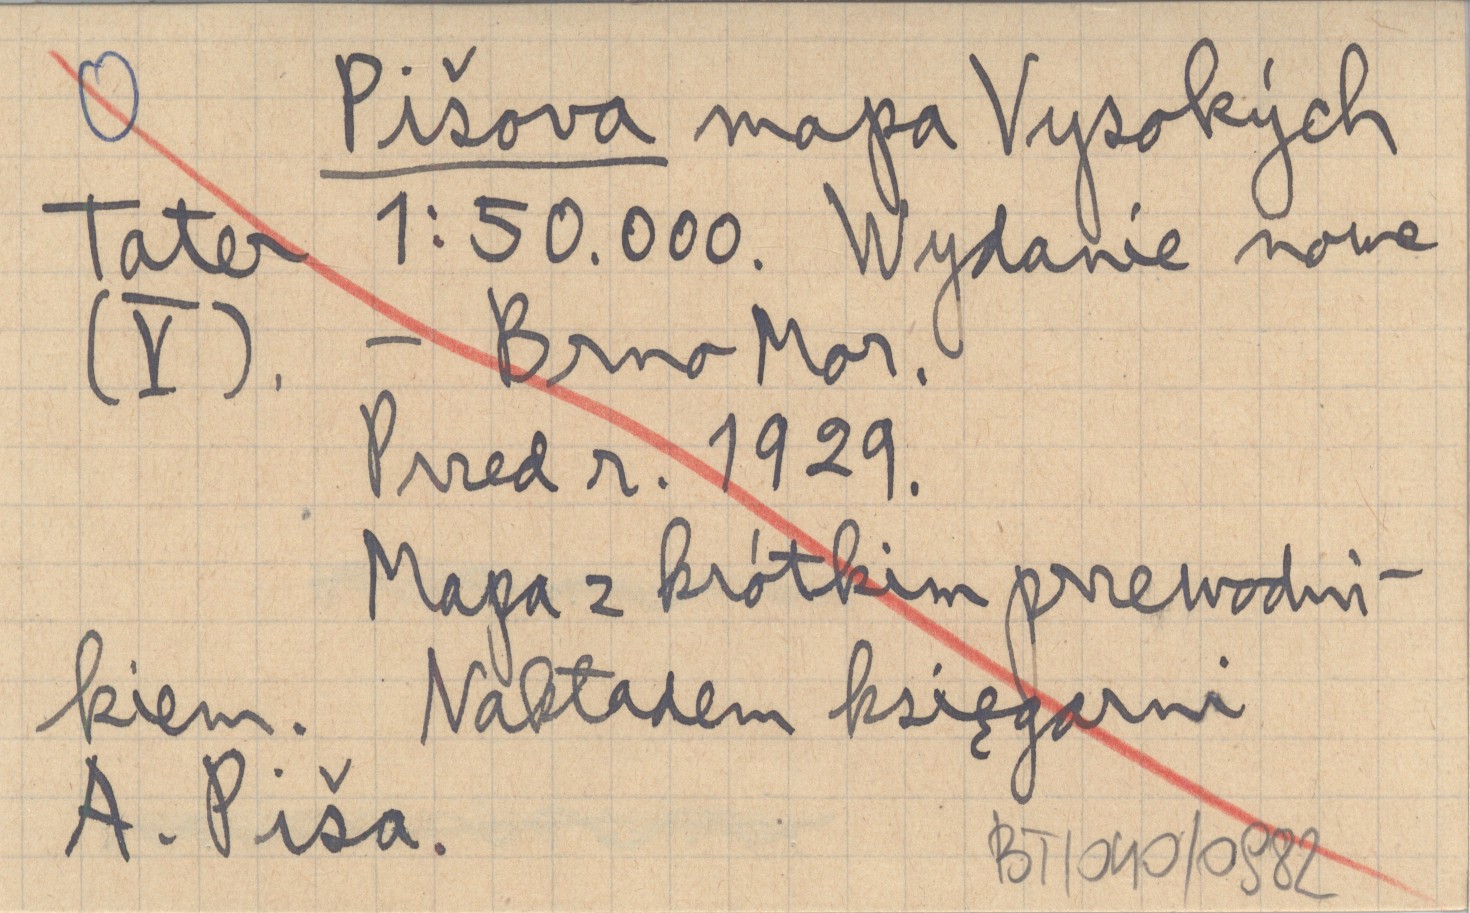 Pišova mapa Vysokých
Tater 1:50.000. Wydanie nowe
(V). – Brno Mor.
Przed r. 1929.
Mapa z krótkim przewodni-
kiem. Nakładem księgarni
A. Piša.
BT/040/0982